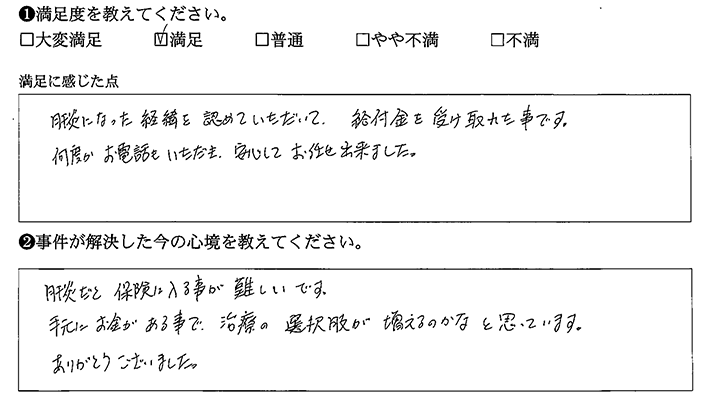 ❶満足度を教えてください。
□大変満足 ☑満足 □普通 □やや不満 □不満
満足に感じた点
肝炎になった経緯を認めていただいて、給付金を受け取れた事です。
何度かお電話もいただき、安心してお任せ出来ました。
❷事件が解決した今の心境を教えてください。
肝炎だと保険に入る事が難しいです。
手元にお金がある事で、治療の選択肢が増えるのかなと思っています。
ありがとうございました。